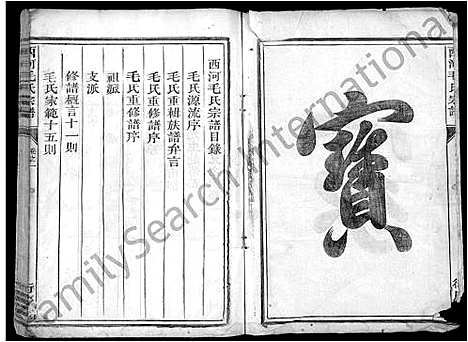 西河毛氏宗譜
寶
西河毛氏宗譜目錄
毛氏源流序
毛氏重輯族譜弁言
毛氏重修譜序
毛氏重修譜序
祖派
支派
修譜概言十一則
毛氏宗範十五則
西河毛氏宗譜
卷之一
FamilySearch International